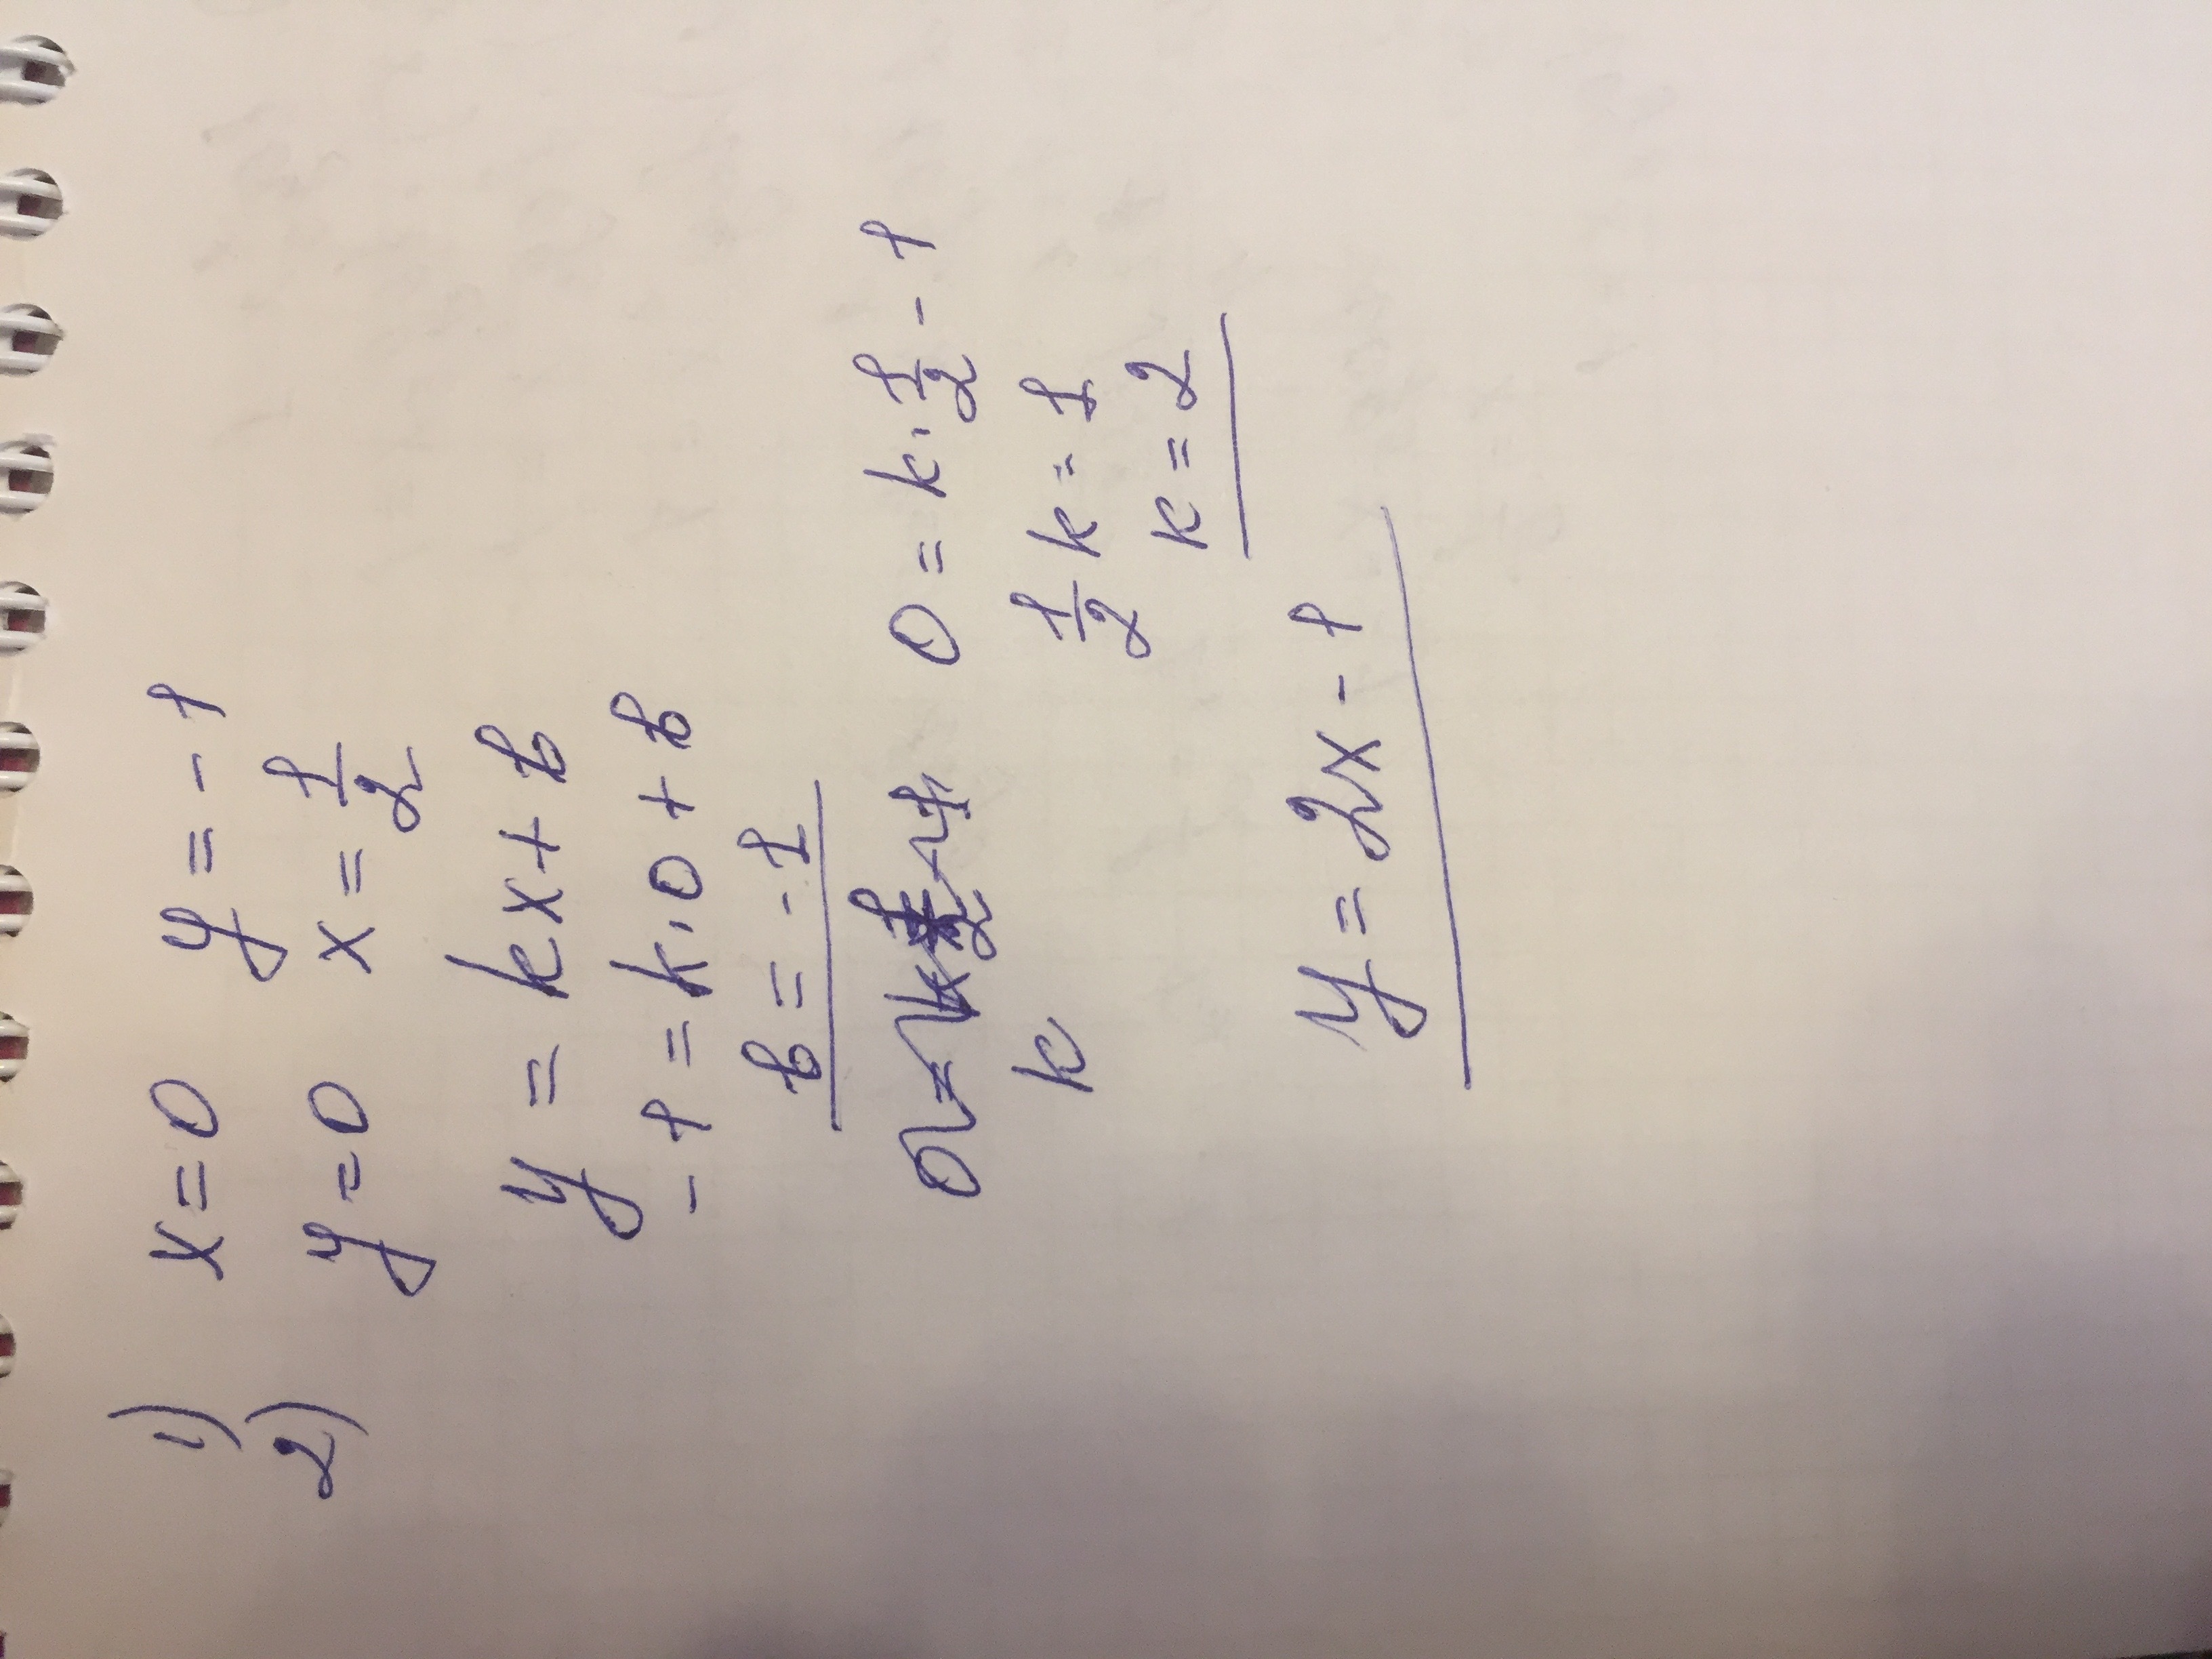 1) x = 0 y = -1
2) y = 0 x = 1/2
y = kx + b
-1 = k·0 + b
b = -1
0 = k·1/2 - 1
k 1/2 k = 1
k = 2
y = 2x - 1